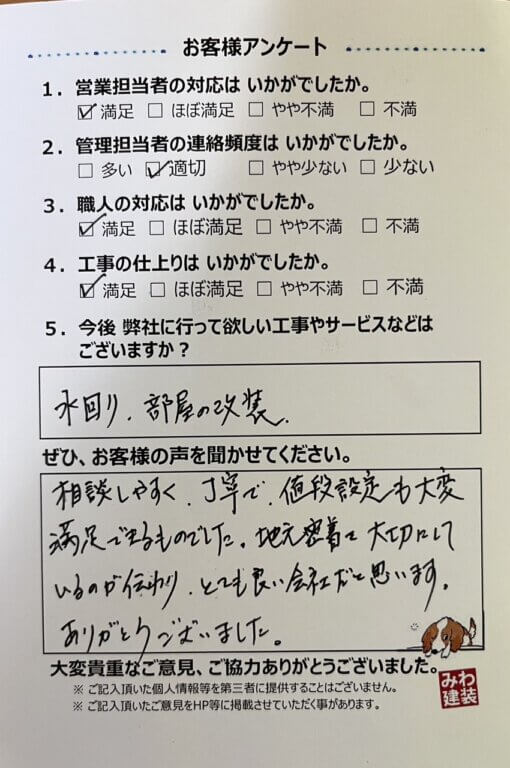 お客様アンケート
1．営業担当者の対応は いかがでしたか。
☑ 満足 □ ほぼ満足 □ やや不満 □ 不満
2．管理担当者の連絡頻度は いかがでしたか。
□ 多い ☑ 適切 □ やや少ない □ 少ない
3．職人の対応は いかがでしたか。
☑ 満足 □ ほぼ満足 □ やや不満 □ 不満
4．工事の仕上りは いかがでしたか。
☑ 満足 □ ほぼ満足 □ やや不満 □ 不満
5．今後 弊社に行って欲しい工事やサービスなどは
ございますか？
水回り、部屋の改装、
ぜひ、お客様の声を聞かせてください。
相談しやすく、丁寧で、値段設定も大変
満足できるものでした。地元密着で大切にして
いるのが伝わり、とても良い会社だと思います。
ありがとうございました。
大変貴重なご意見、ご協力ありがとうございました。
※ ご記入頂いた個人情報等を第三者に提供することはございません。
※ ご記入頂いたご意見をHP等に掲載させていただく事があります。
みわ
建装